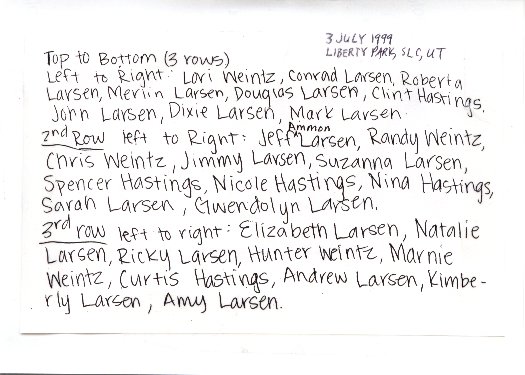 3 JULY 1999
LIBERTY PARK, SLC, UT
Top to Bottom (3 rows)
Left to Right: Lori Weintz, Conrad Larsen, Roberta
Larsen, Merlin Larsen, Douglas Larsen, Clint Hastings,
John Larsen, Dixie Larsen, Mark Larsen
2nd Row left to Right: Jeff Ammon Larsen, Randy Weintz,
Chris Weintz, Jimmy Larsen, Suzanna Larsen,
Spencer Hastings, Nicole Hastings, Nina Hastings,
Sarah Larsen, Gwendolyn Larsen.
3rd row left to right: Elizabeth Larsen, Natalie
Larsen, Ricky Larsen, Hunter Weintz, Marnie
Weintz, Curtis Hastings, Andrew Larsen, Kimbe-
rly Larsen, Amy Larsen.